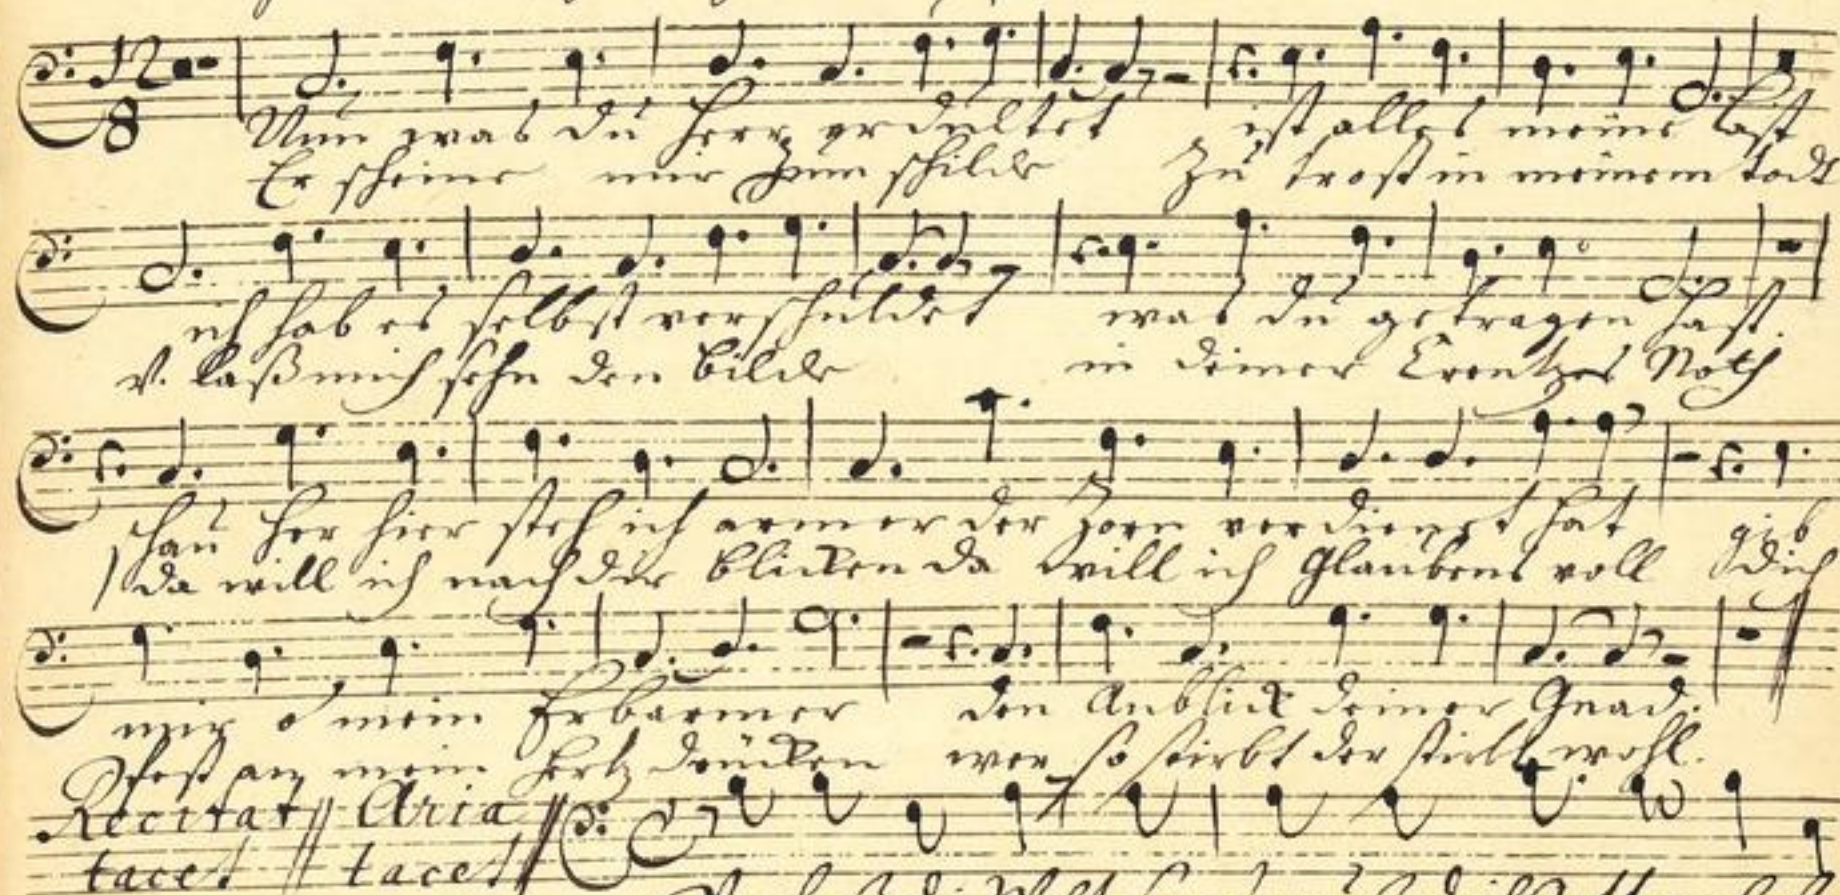 12
8
Nun was du Herr erdultet ist alles meine Last
Er scheine mir zum schilde zu trost in meinem todt
ich hab es selbst verschuldet was du getragen hast.
v. Laß mich sehn den bilde in deiner Creutzes Noth
schau her hier steh ich armer der Zorn verdienet hat gib
da will ich nach dir blicken da will ich Glaubens voll dich
mir o mein Erbarmer den Anblick deiner Gnad.
fest an mein Hertz drücken wer so stirbt der stirbt wohl.
Recitat Aria
tacet tacet